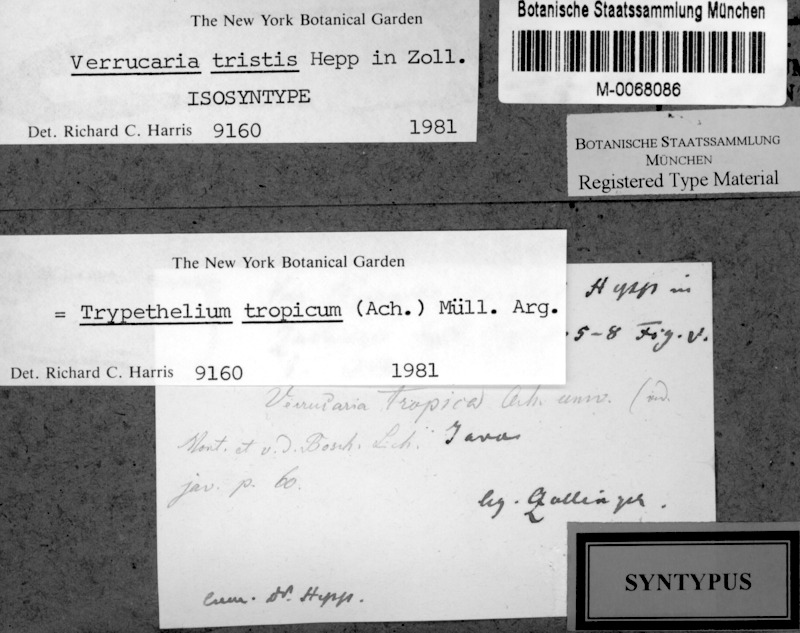 The New York Botanical Garden
Verrucaria tristis Hepp in Zoll.
ISOSYNTYPE
Det. Richard C. Harris 9160 1981
Botanische Staatssammlung München
M-0068086
BOTANISCHE STAATSSAMMLUNG
MÜNCHEN
Registered Type Material
The New York Botanical Garden
= Trypethelium tropicum (Ach.) Müll. Arg.
Det. Richard C. Harris 9160 1981
Hepp in
5-8 Fig. V.
Verrucaria tropica Ach. univ. (vid.
Mont. et v. d. Bosch. Lich. Java
jav. p. 60.
leg. Zollinger.
comm. Dr. Hepp.
SYNTYPUS